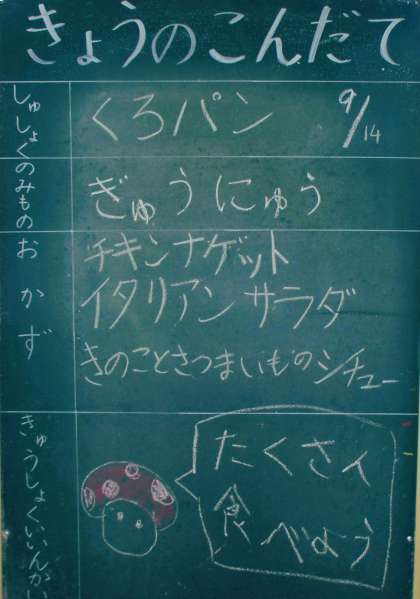 きょうのこんだて
しゅしょく
くろパン
9/14
のみもの
ぎゅうにゅう
おかず
チキンナゲット
イタリアンサラダ
きのことさつまいものシチュー
きゅうしょくいいんかい
たくさん
食べよう